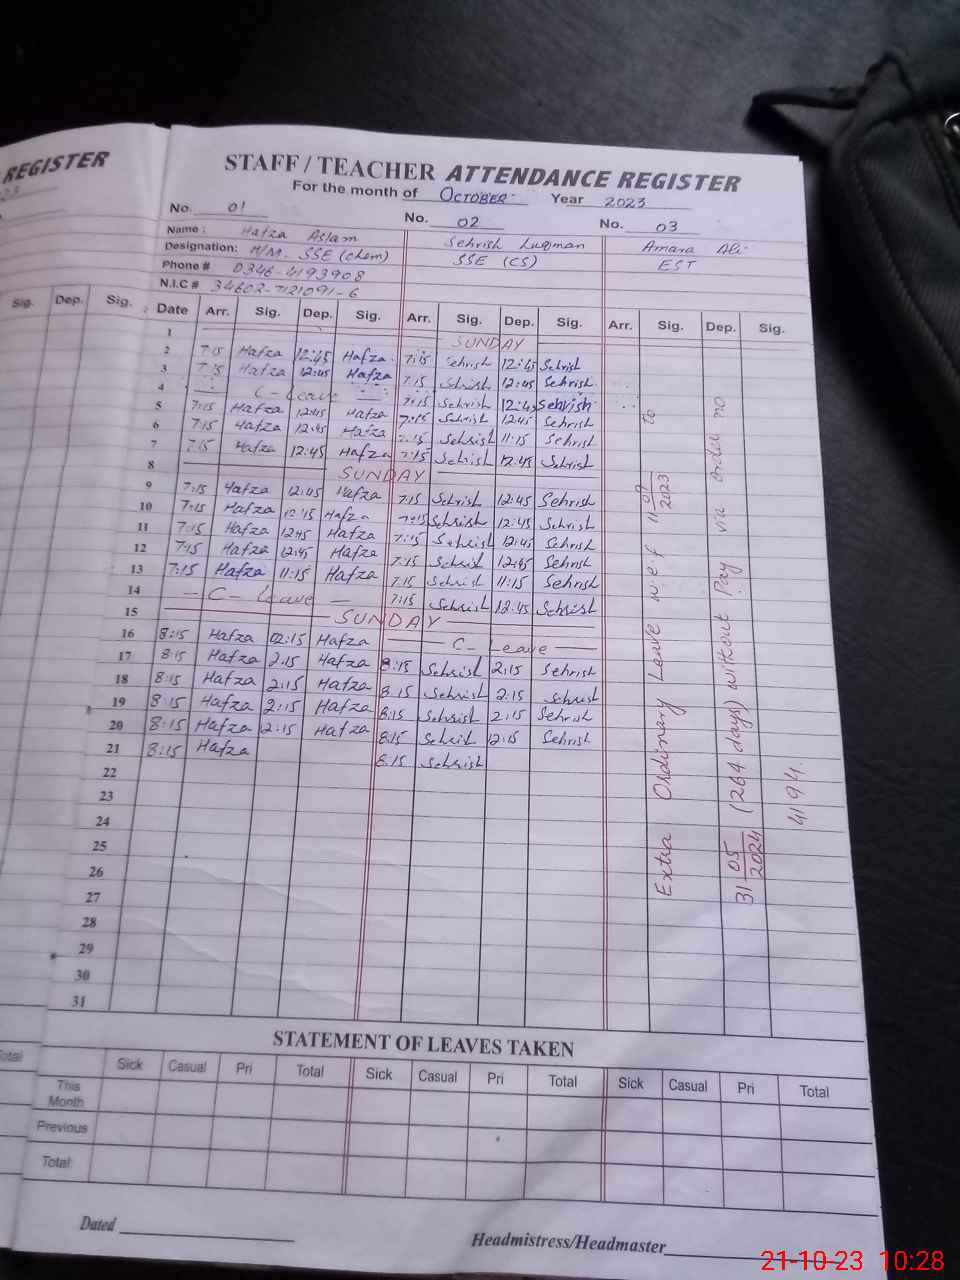 REGISTER
STAFF / TEACHER ATTENDANCE REGISTER
For the month of OCTOBER Year 2023
No. 01 No. 02 No. 03
Name : Hafza Aslam Sehrish Luqman Amara Ali
Designation: H/M. SSE (chem) SSE (CS) EST
Phone # 0346-4193908
N.I.C # 34602-7121091-6
Sig. Dep. Sig. Date Arr. Sig. Dep. Sig. Arr. Sig. Dep. Sig. Arr. Sig. Dep. Sig.
1 SUNDAY
2 7:15 Hafza 12:45 Hafza 7:15 Sehrish 12:45 Sehrish
3 7:15 Hafza 12:45 Hafza 7:15 Sehrish 12:45 Sehrish
4 C-Leave 7:15 Sehrish 12:45 Sehrish
5 7:15 Hafza 12:45 Hafza 7:15 Sehrish 12:45 Sehrish
6 7:15 Hafza 12:45 Hafza 7:15 Sehrish 11:15 Sehrish
7 7:15 Hafza 12:45 Hafza 7:15 Sehrish 12:45 Sehrish
8 SUNDAY
9 7:15 Hafza 12:45 Hafza 7:15 Sehrish 12:45 Sehrish
10 7:15 Hafza 10:15 Hafza 7:15 Sehrish 12:45 Sehrish
11 7:15 Hafza 12:45 Hafza 7:15 Sehrish 12:45 Sehrish
12 7:15 Hafza 12:45 Hafza 7:15 Sehrish 12:45 Sehrish
13 7:15 Hafza 11:15 Hafza 7:15 Sehrish 11:15 Sehrish
14 - C- Leave - 7:15 Sehrish 12:45 Sehrish
15 SUNDAY
16 8:15 Hafza 02:15 Hafza C- Leave
17 8:15 Hafza 2:15 Hafza 8:15 Sehrish 2:15 Sehrish
18 8:15 Hafza 2:15 Hafza 8:15 Sehrish 2:15 Sehrish
19 8:15 Hafza 2:15 Hafza 8:15 Sehrish 2:15 Sehrish
20 8:15 Hafza 12:15 Hafza 8:15 Sehrish 12:15 Sehrish
21 8:15 Hafza 8:15 Sehrish
22
23
24
25
26
27
28
29
30
31
Extra Ordinary Leave w.e.f 11 09 2023 to
31 05 2024 (264 days) without Pay via order no
4194.
STATEMENT OF LEAVES TAKEN
Sick Casual Pri Total Sick Casual Pri Total Sick Casual Pri Total
This Month
Previous
Total
Dated
Headmistress/Headmaster
21-10-23 10:28